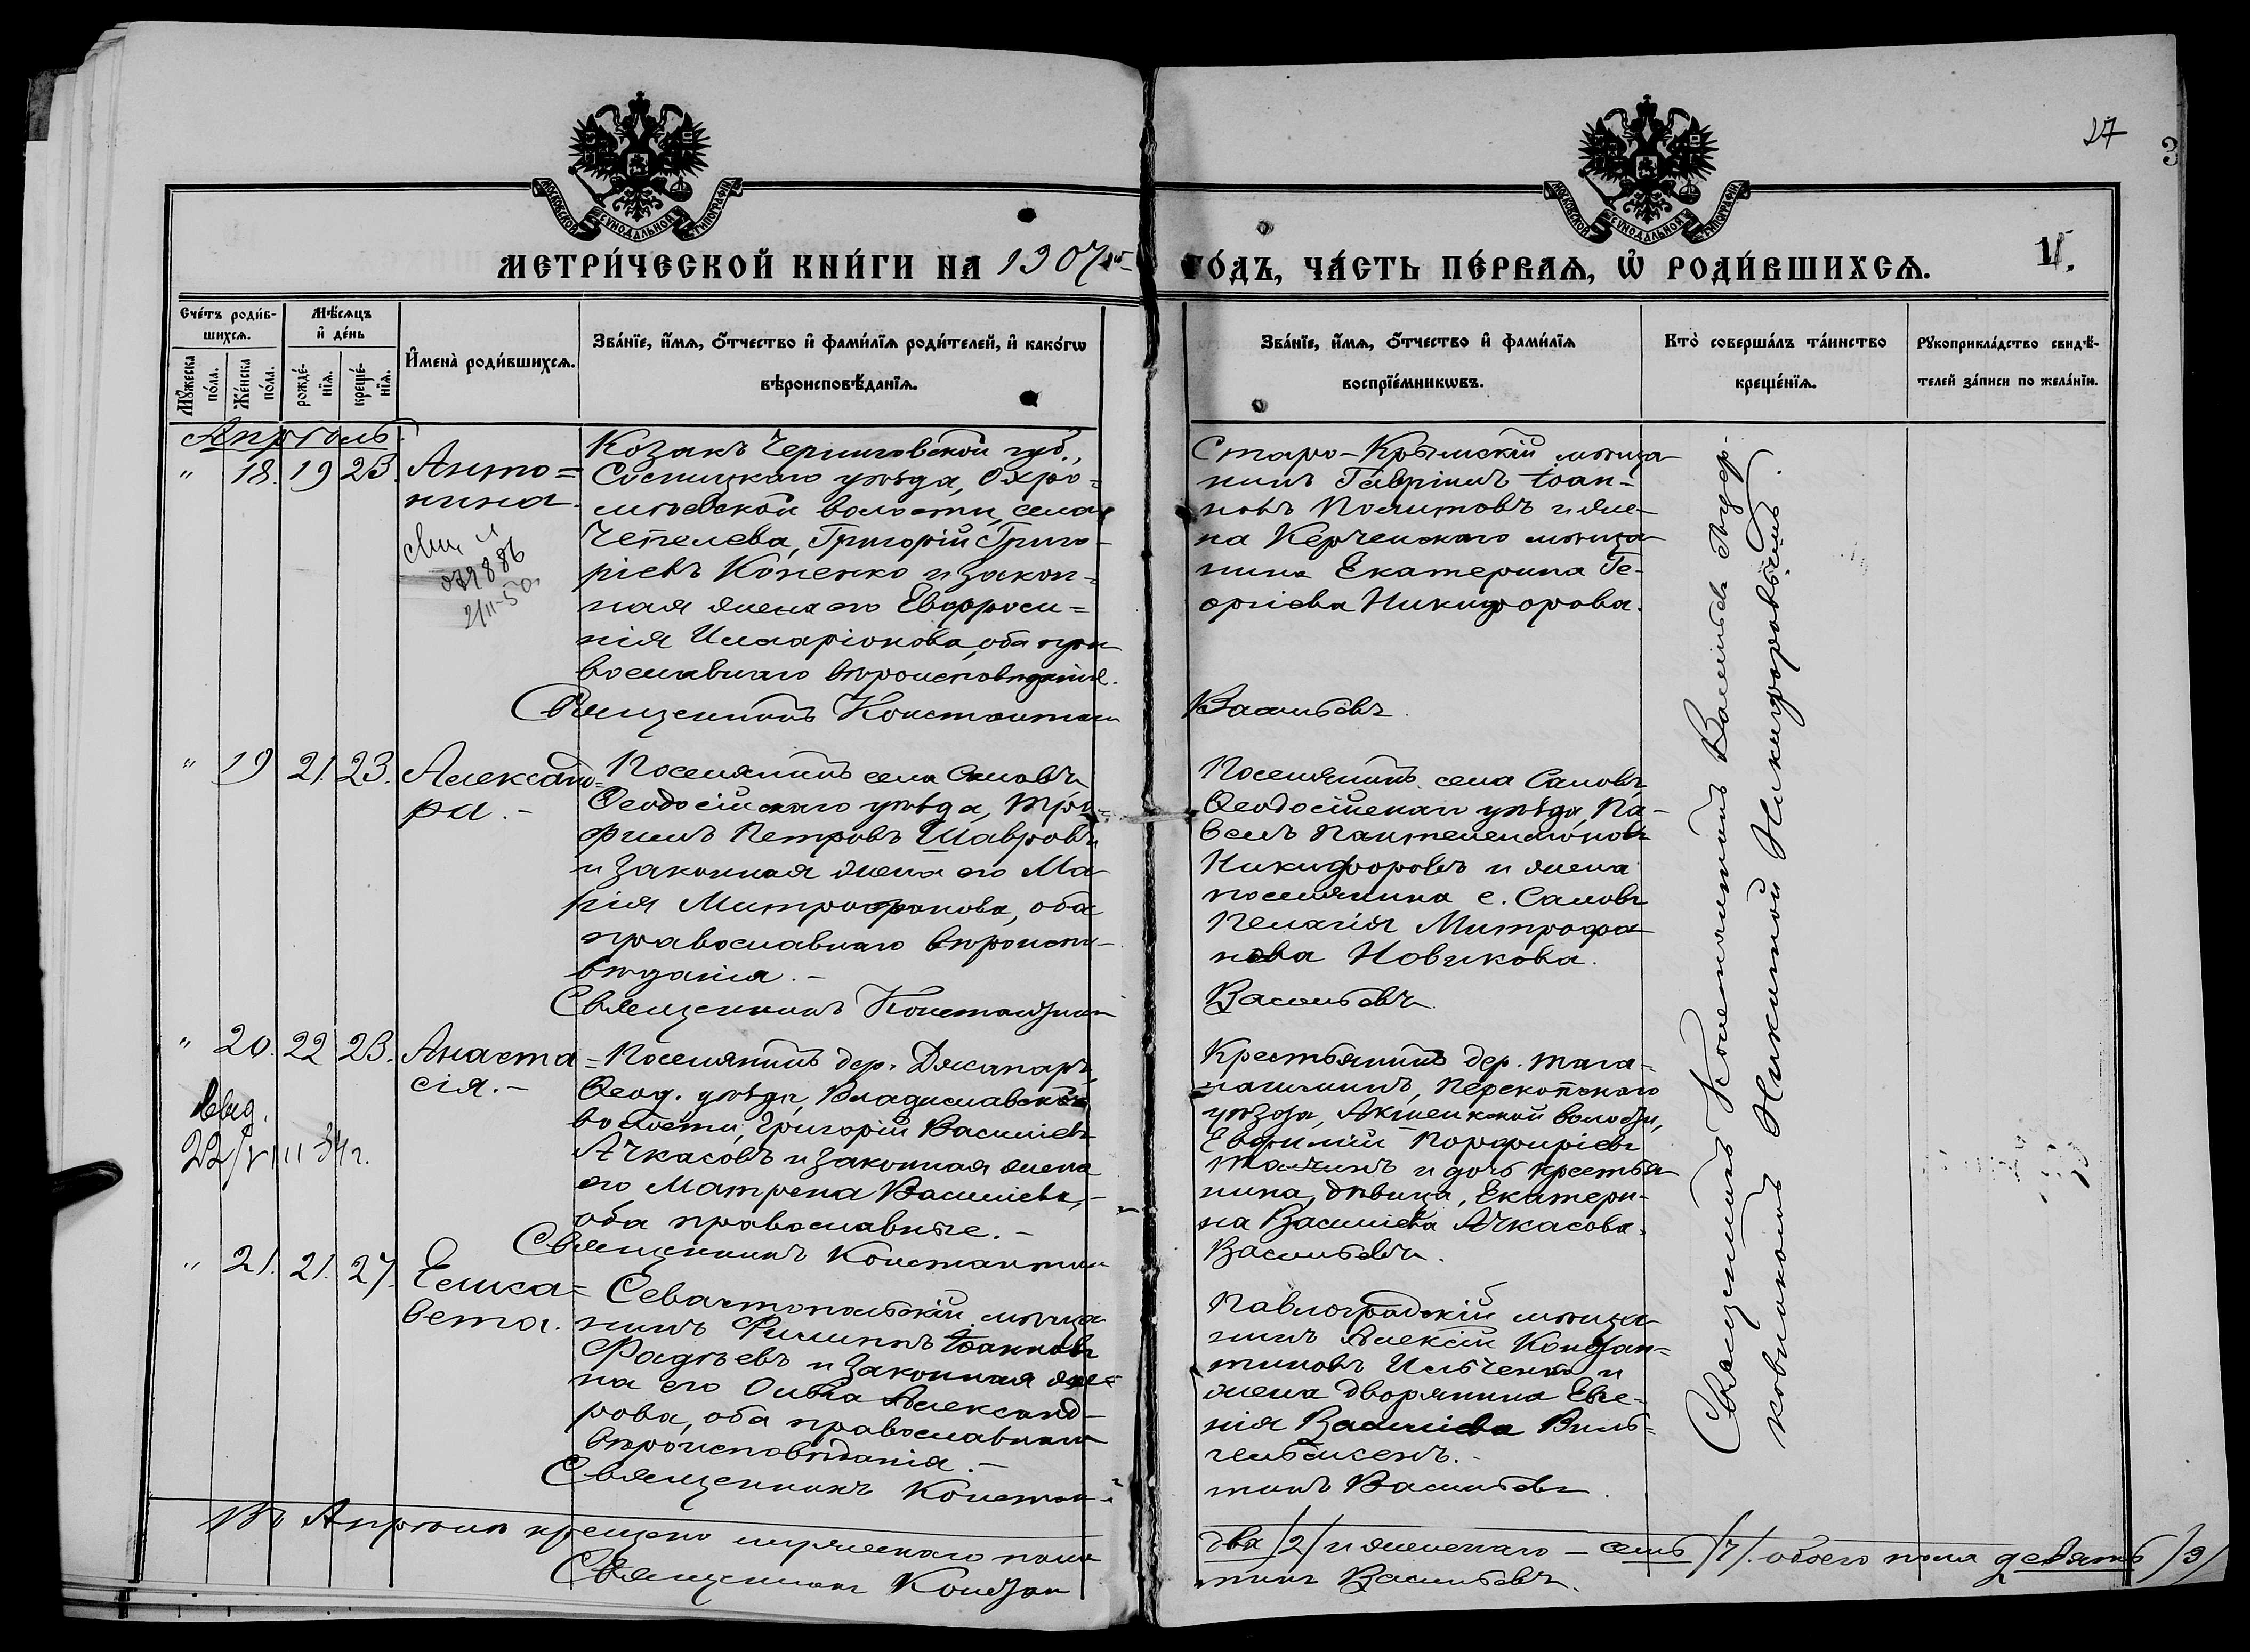 27
МОСКОВСКОЙ СУНОДАЛЬНОЙ ТИПОГРАФІИ
МОСКОВСКОЙ СУНОДАЛЬНОЙ ТИПОГРАФІИ
МЕТРИ́ЧЕСКОЙ КНИ́ГИ НА 1907 ГО́ДЪ, ЧА́СТЬ ПЕ́РВАѦ, Ѡ҆ РОДИ́ВШИХСѦ.
Сче́тъ роди́в-
шихсѧ.
Мꙋ́жеска
по́ла.
Же́нска
по́ла.
Мѣ́сѧцъ
и҆ де́нь
рожде́-
нїѧ.
креще́-
нїѧ.
И҆мена̀ роди́вшихсѧ.
Зва́нїе, и҆́мѧ, ѻ҆́тчество и҆ фами́лїѧ роди́телей, и҆ како́гѡ
вѣроисповѣ́данїѧ.
Зва́нїе, и҆́мѧ, ѻ҆́тчество и҆ фами́лїѧ
воспрїе́мникѡвъ.
Кто̀ соверша́лъ та́инство
креще́нїѧ.
Рꙋкоприкла́дство свидѣ́-
телей за́писи по жела́нїю.
Апрѣль.
" 18. 19 23. Анто=
нина.
079886
Козакъ Черниговской губ.,
Сосницкаго уѣзда, Охро-
мѣевской волости, села
Чепелева, Григорій Григо-
ріевъ Коненко и закон-
ная жена его Евфроси=
нія Илларіонова, оба пра-
вославнаго вѣроисповѣданія.
Священникъ Константин
Старо-Крымскій мѣща-
нинъ Гавріилъ Іоан-
новъ и же-
на Керченскаго мѣща-
нина Екатерина Ге-
оргіева Никифорова.
Васильевъ.
" 19 21. 23. Александ=
ра.-
Поселянинъ села Саловъ
Ѳеодосійскаго уѣзда, Тро-
фимъ Петровъ Шавровъ
и законная жена его Ма-
рія Митрофанова, оба
православнаго вѣроиспо-
вѣданія.-
Священникъ Константин
Поселянинъ села Саловъ
Ѳеодосійскаго уѣзда, Па-
велъ Пантелеимоновъ
Никифоровъ и жена
поселянина с. Саловъ
Пелагія Митрофа-
нова Новикова.
Васильевъ
" 20. 22 23. Анаста
сія.-
22/VIII 34 г.
Поселянинъ дер. Джапаръ,
Ѳеод. уѣзда, Владиславской
волости, Григорій Василіевъ
Ачкасовъ и законная жена
его Матрена Василіева,-
оба православные.-
Священникъ Константин
Крестьянинъ дер.
Перекопскаго
уѣзда, волости,
Евфимій Порфиріевъ
и дочь крестья
нина, дѣвица, Екатери-
на Василіева Ачкасова.
Васильевъ.
" 21. 21. 27. Елиса=
вета.
Севастопольскій мѣща
нинъ Филиппъ Іоанновъ
Фадѣевъ и законная же=
на его Ольга Александ-
рова, оба православнаго
вѣроисповѣданія.-
Священникъ Констан-
Павлоградскій мѣща-
нинъ Алексій Констан=
тиновъ Ильченко и
жена дворянина Евге-
нія Василіева Виль=
тинъ Васильевъ.
Священникъ Константинъ Васильевъ
Никитой Никифоровымъ.
Въ Апрѣлѣ крещено мужескаго пола два /2/ и женскаго - семь /7/. обоего пола девять /9/
Священникъ Констан тинъ Васильевъ.